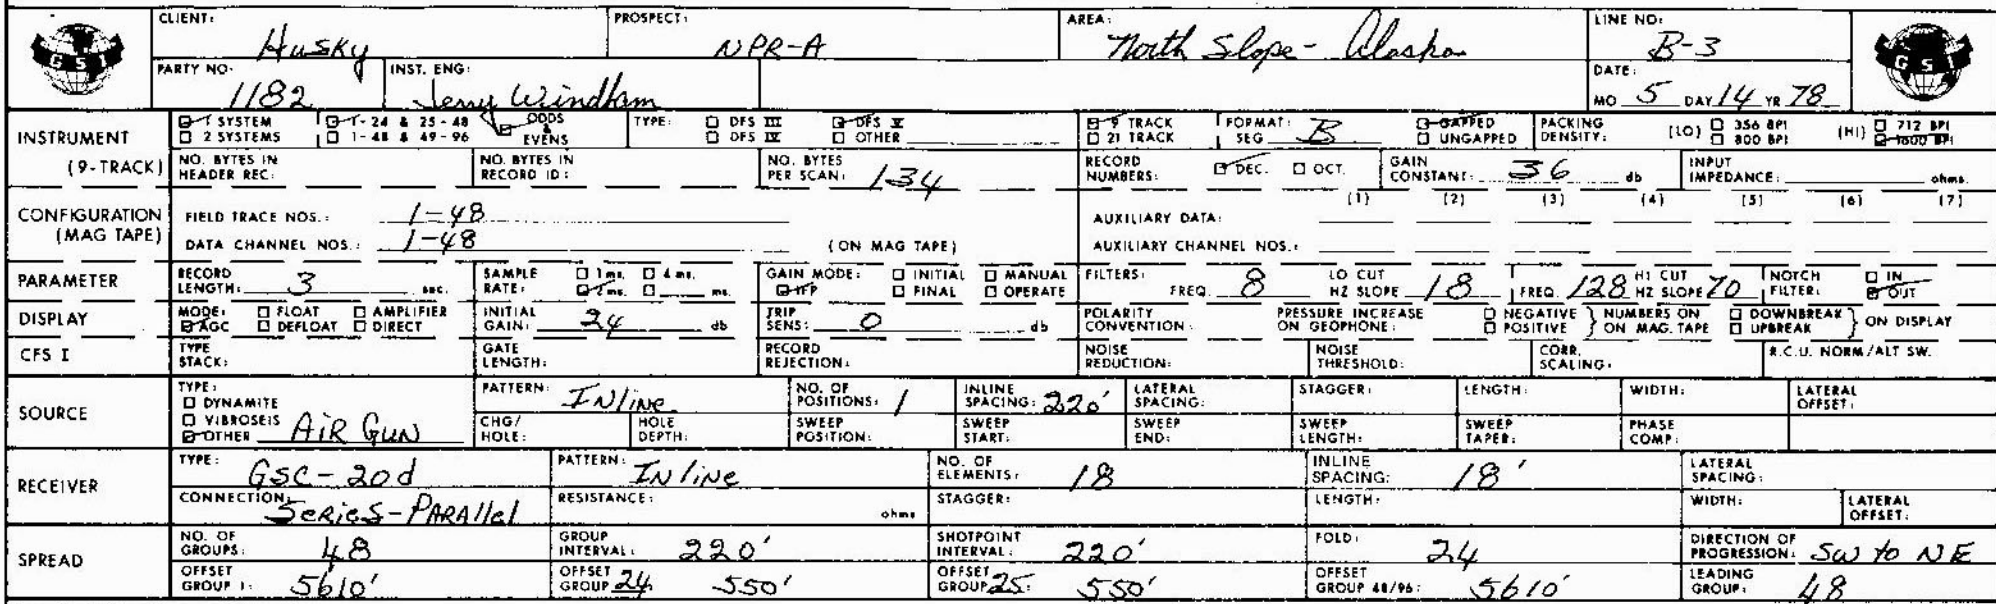 CLIENT: Husky PROSPECT: NPR-A AREA: North Slope - Alaska LINE NO: B-3
GSI GSI
PARTY NO. 1182 INST. ENG: Jerry Windham DATE: MO 5 DAY 14 YR 78
INSTRUMENT (9-TRACK)
1 SYSTEM 1-24 & 25-48 ODDS & EVENS TYPE: DFS III DFS V 9 TRACK FORMAT: SEG B GAPPED PACKING DENSITY: (LO) 356 BPI (HI) 712 BPI
2 SYSTEMS 1-48 & 49-96 DFS IV OTHER 21 TRACK UNGAPPED 800 BPI 1600 BPI
NO. BYTES IN HEADER REC: NO. BYTES IN RECORD ID: NO. BYTES PER SCAN: 134 RECORD NUMBERS: DEC. OCT. GAIN CONSTANT: 36 db INPUT IMPEDANCE: ohms.
CONFIGURATION (MAG TAPE)
(1) (2) (3) (4) (5) (6) (7)
FIELD TRACE NOS.: 1-48 AUXILIARY DATA:
DATA CHANNEL NOS.: 1-48 (ON MAG TAPE) AUXILIARY CHANNEL NOS.:
PARAMETER RECORD LENGTH: 3 sec. SAMPLE RATE: 1 ms. 4 ms. 2 ms. ms. GAIN MODE: INITIAL MANUAL IFP FINAL OPERATE FILTERS: FREQ. 8 LO CUT HZ SLOPE 18 FREQ. 128 HI CUT HZ SLOPE 70 NOTCH FILTER: IN OUT
DISPLAY MODE: FLOAT AMPLIFIER AGC DEFLOAT DIRECT INITIAL GAIN: 24 db TRIP SENS: 0 db POLARITY CONVENTION: PRESSURE INCREASE ON GEOPHONE: NEGATIVE POSITIVE } NUMBERS ON MAG. TAPE DOWNBREAK UPBREAK } ON DISPLAY
CFS I TYPE STACK: GATE LENGTH: RECORD REJECTION: NOISE REDUCTION: NOISE THRESHOLD: CORR. SCALING: R.C.U. NORM/ALT SW.
SOURCE TYPE: DYNAMITE VIBROSEIS OTHER AIR GUN PATTERN: INline NO. OF POSITIONS: 1 INLINE SPACING: 220' LATERAL SPACING: STAGGER: LENGTH: WIDTH: LATERAL OFFSET:
CHG/HOLE: HOLE DEPTH: SWEEP POSITION: SWEEP START: SWEEP END: SWEEP LENGTH: SWEEP TAPER: PHASE COMP:
RECEIVER TYPE: GSC-20d PATTERN: INline NO. OF ELEMENTS: 18 INLINE SPACING: 18' LATERAL SPACING:
CONNECTION: Series-PARAllel RESISTANCE: ohms STAGGER: LENGTH: WIDTH: LATERAL OFFSET:
SPREAD NO. OF GROUPS: 48 GROUP INTERVAL: 220' SHOTPOINT INTERVAL: 220' FOLD: 24 DIRECTION OF PROGRESSION: SW to NE
OFFSET GROUP 1: 5610' OFFSET GROUP 24: 550' OFFSET GROUP 25: 550' OFFSET GROUP 48/96: 5610' LEADING GROUP: 48